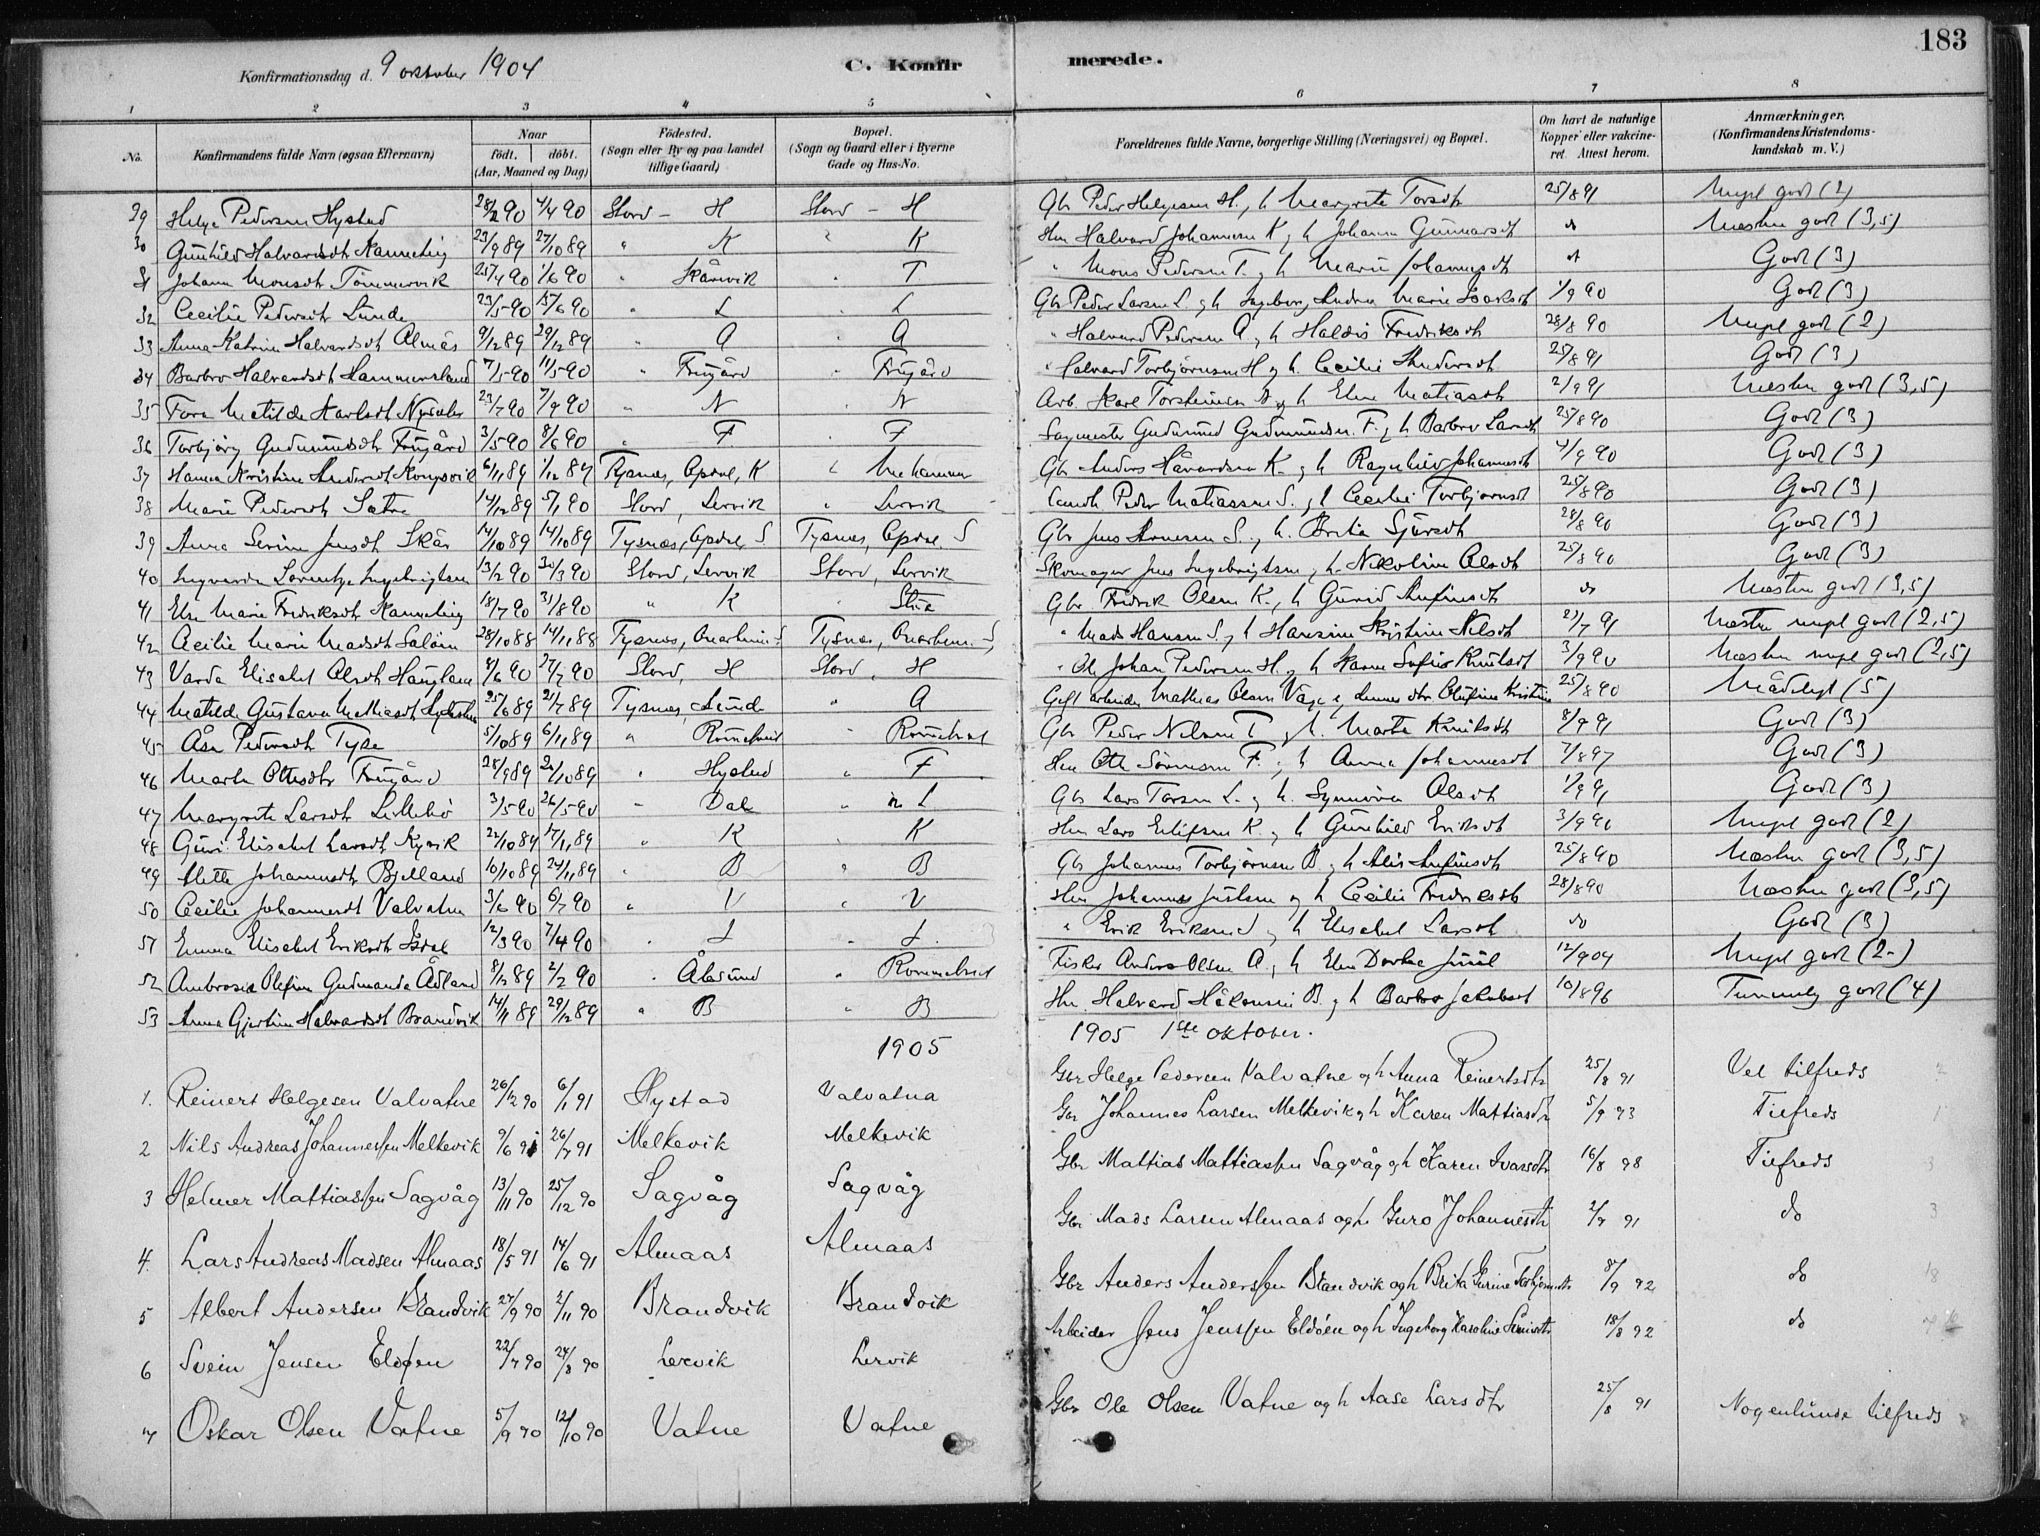 183
Konfirmationsdag d. 9 oktober 1904 C. Konfir merede.
1 2 3 4 5 6 7 8
No. Konfirmandens fulde Navn (ogsaa Efternavn) Naar født. døbt. (Aar, Maaned og Dag) Fødested. (Sogn eller By og paa Landet tillige Gaard) Bopæl. (Sogn og Gaard eller i Byerne Gade og Hus-No. Forældrenes fulde Navne, borgerlige Stilling (Næringsvei) og Bopæl. Om havt de naturlige Kopper eller vakcineret. Attest herom. Anmærkninger. (Konfirmandens Kristendomskundskab m. V.)
29 Helge Pedersen Hystad 28/2 90 4/4 90 Stord - H Stord - H Gbr Peder Helgesen H., h Margrete Torsdtr 25/8 91 Meget god (2)
30 Gunhild Halvardsdt Kannelønig 23/9 89 27/10 89 " K " K Hm Halvard Johannesen K og h Johanna Gunnarsdt do Næsten god (3,5)
31 Johanna Monsdtr Tømmervik 25/4 90 1/6 90 " Skårvik " T " Mons Pedersen T. og h Marie Johannesdt do God (3)
32 Cecilie Pedersdtr Lunde 23/5 90 15/6 90 " L " L Gbr Peder Larsen L. og h Ingeborg Andrea Marie Isaksdt 1/9 90 God (3)
33 Anna Katrine Halvardsdt Almås 9/12 89 29/12 89 " A " A " Halvard Pedersen A, h Haldis Fredriksdt 28/8 90 Meget god (2)
34 Barbro Halvardsdt Hammersland 7/5 90 11/5 90 " Frugård " Frugård " Halvard Torbjørnsen H og h. Cecilie Andersdt 25/8 91 God (3)
35 Tora Matilde Karlsdt Nysæter 23/7 90 7/9 90 " N " N Arb. Karl Torsteinsen N og h Elen Matiasdt 2/9 91 Næsten god (3,5)
36 Torbjørg Gudmundsdt Frugård 3/5 90 8/6 90 " F " F Sagmester Gudmund Gudmundsen F. og h Barbro Larsdt 25/8 90 God (3)
37 Hanna Kristine Andersdt Kongsvik 6/11 89 1/12 89 Tysnes, Opdal, K " Gbr Anders Håvardsen K. og h Ragnhild Johannesdt 4/9 90 God (3)
38 Marie Pedersdt Sætre 14/12 89 5/1 90 Stord, Lervik " Lervik Landh. Peder Matiassen S. og h Cecilie Torbjørnsdt 25/8 90 God (3)
39 Anna Serine Jensdt Skår 14/10 89 14/10 89 Tysnes, Opdal S Tysnes, Opdal S Gbr Jens Arnesen S. og h. Brita Sjursdt 28/8 90 God (3)
40 Ingvarda Lorentze Ingebrigtsen 13/2 90 30/3 90 Stord, Lervik Stord, Lervik Skomager Jens Ingebrigtsen og h. Nikoline Olsdt 25/8 90 God (3)
41 Else Marie Fredriksdt 18/7 90 31/8 90 " K " Stuve Gbr Fredrik Olsen K., h Gurid Anfinsdt do Næsten god (3,5)
42 Cecilie Marie Madsdt Saløen 28/10 88 14/11 88 Tysnes, Onarheim S Tysnes, Onarheim S " Mads Hansen S. og h Hansine Kristine Nilsdt 21/7 91 Næsten meget god (2,5)
43 Varda Elisabet Olsdt Haugland 8/6 90 27/7 90 Stord, H Stord, H " Ole Johan Pedersen H. og h Karen Sofie Knutsdt 3/9 90 Næsten meget god (2,5)
44 Matilde Gustava Mathiasdt 25/6 89 21/7 89 Tysnes, Lunde " A Gift arbeider Mathias Olsen Våge og Olufine Kristine 25/8 90 Mådelig (5)
45 Åsa Pedersdt Tyse 5/10 89 6/11 89 " Rommetveit " Rommetveit Gbr Peder Nilsen T og h. Marta Knutsdt 8/9 91 God (3)
46 Marta Ottesdtr Frugård 28/9 89 20/10 89 " Hystad " F Hm Otte Sørensen F. og h Anna Johannesdt 7/8 97 God (3)
47 Margrete Larsdt Lillebø 3/5 90 26/5 90 " Dale " n L Gbr Lars Tørsen L. og h. Synnøva Olsdt 1/9 91 God (3)
48 Guri Elisabet Larsdt Kyvik 22/10 89 17/11 89 " K " K Hm Lars Eilifsen K. og h Gunhild Eriksdt 3/9 90 Meget god (2)
49 Alette Johannesdt Bjelland 10/10 89 24/11 89 " B " B Gbr Johannes Torbjørnsen B og h Alis Anfinsdt 25/8 90 Næsten god (3,5)
50 Cecilie Johannesdt Valvatne 3/6 90 6/7 90 " V " V Hm Johannes Justsen og h Cecilie Fredriksdt 28/8 90 Næsten god (3,5)
51 Emma Elisabet Eriksdt Isdal 12/3 90 7/4 90 " I " I. " Erik Eriksen I og h Elisabet Larsdt do God (3)
52 Ambrosia Olefine Gudmanda Ådland 8/12 89 2/2 90 " Ålesund " Rommetveit Fisker Anders Olsen A, h Elen Dortea Juul 12/9 04 Meget god (2-)
53 Anna Gjertine Halvardsdt Brandvik 14/11 89 29/12 89 " B " B Hm. Halvard Håkonsen B. og h Barbro Jakobsdt 10/8 96 Temmelig god (4)
1905 1905 1ste oktober.
1. Reinert Helgesen Valvatne 26/12 90 6/1 91 Hystad Valvatna Gbr Helge Pedersen Valvatne og h Anna Reinertsdtr 25/8 91 Vel tilfreds 2
2 Nils Andreas Johannessen Melkevik 9/6 91 26/7 91 Melkevik Melkevik Gbr Johannes Larsen Melkevik og h Karen Mattiasdtr 5/9 93 Tilfreds 1
3 Helmer Mattiassen Sagvåg 13/11 90 25/12 90 Sagvåg Sagvåg Gbr Mattias Mattiassen Sagvåg og h Karen Ivarsdtr 16/8 98 Tilfreds 3
4. Lars Andreas Madsen Almaas 18/5 91 14/6 91 Almaas Almaas Gbr Mads Larsen Almaas og h. Guro Johannesdtr 2/9 91 do 3
5 Albert Andersen Brandvik 27/9 90 2/11 90 Brandvik Brandvik Gbr Anders Anderssen Brandvik og h Brita Gurine Torbjørnsdtr 8/9 92 do 18
6 Svein Jensen Eldøen 22/7 90 24/8 90 Lervik Lervik Arbeider Jens Jenssen Eldøen og h Ingeborg Karoline 18/8 92 do 7
7 Oskar Olsen Vatne 5/9 90 12/10 90 Vatne Vatne Gbr Ole Olsen Vatne og h Aase Larsdtr 25/8 91 Nogenlunde tilfreds